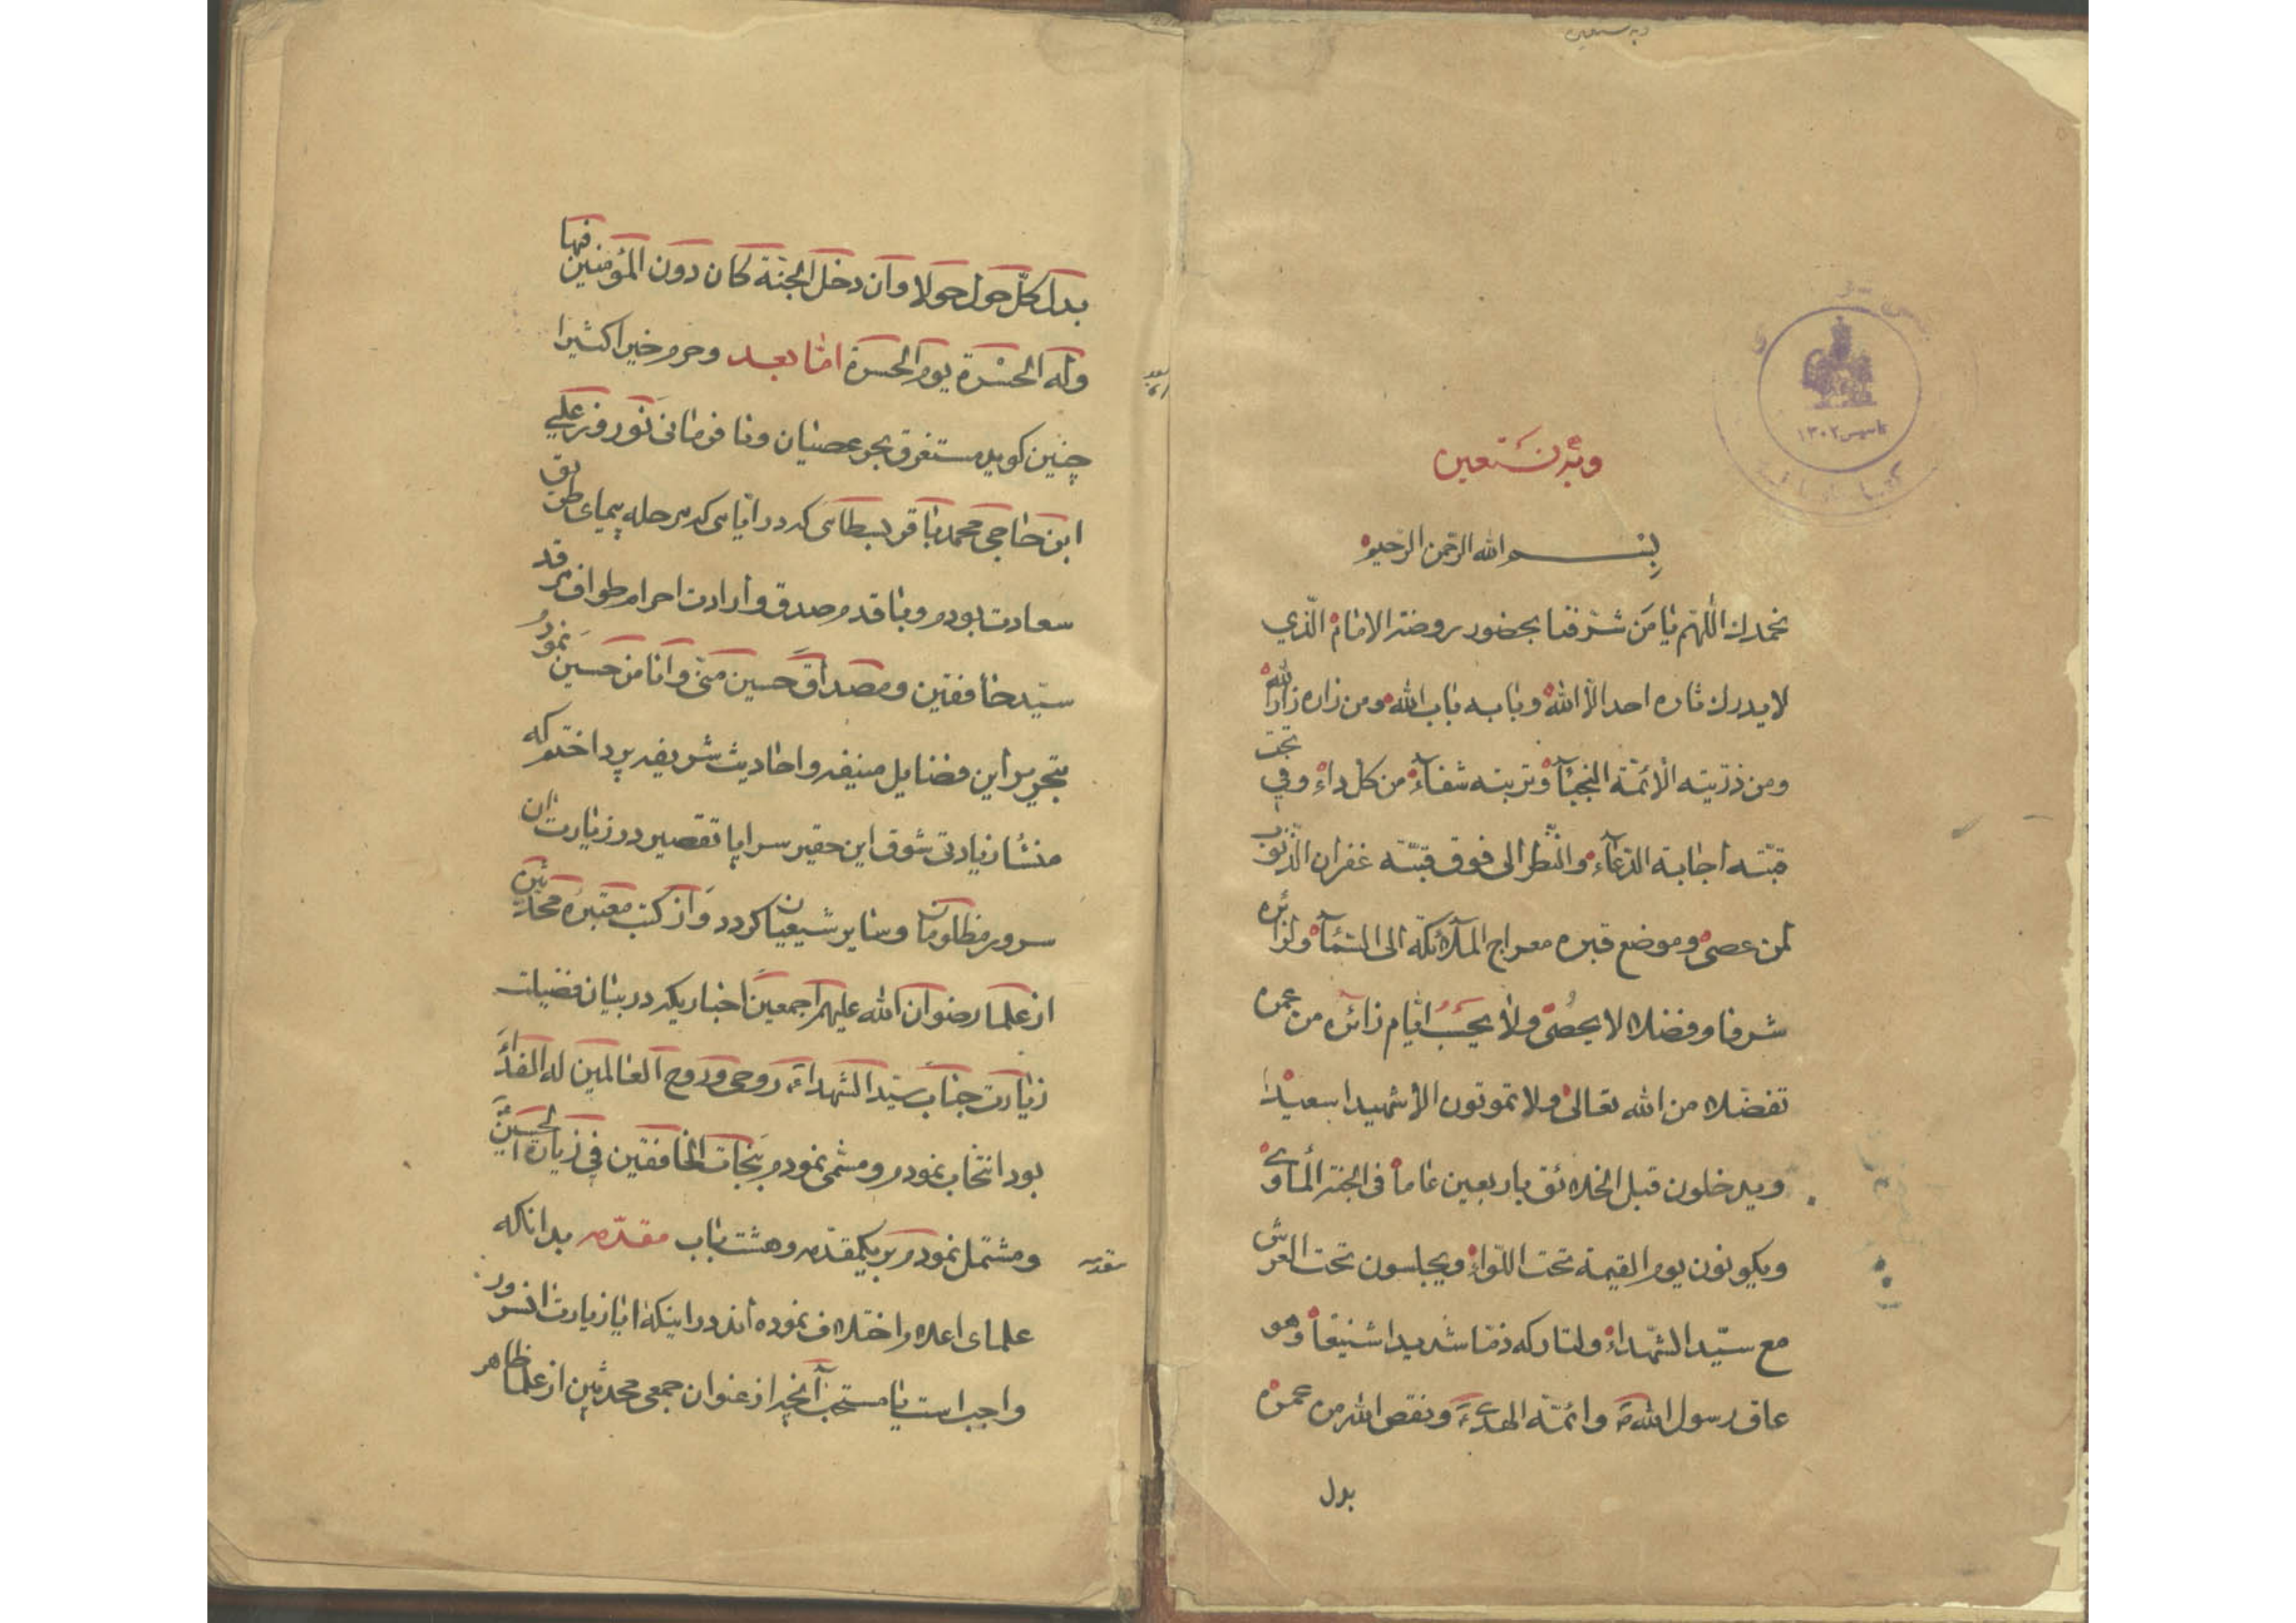 وبه نستعین
بسم الله الرحمن الرحیم
نحمدك اللّهمّ یا من شرّفنا بحضور روضة الامام الّذي
لا یدرك ثاره احد الّا الله وبابه باب الله ومن زاره زار الله
ومن ذرّیته الأئمّة النجبآء وتربته شفآء من كل داء وفي تحت
قبّته اجابة الدّعآء والنّظر الی فوق قبّته غفران الذّنوب
لمن عصی وموضع قبره معراج الملآئكة الی السّمآء ولزائره
شرفا وفضلا لا یحصی ولا یحسب ایّام زائره من عمره
تفضّلا من الله تعالی ولا تموتون الا شهیدا سعیدا
ویدخلون قبل الخلائق باربعین عاما فی الجنة المأوی
ویكونون یوم القیمة تحت اللّواء ویجلسون تحت العرش
مع سیّد الشّهداء ولتاركه ذمّا شدیدا شنیعا وهو
عاق رسول الله ص وائمّة الهدی ع ونقص الله من عمره
بدل
بدل كلّ حول حولا وان دخل الجنّة كان دون المؤمنین فیها
وله الحسرة یوم الحسرة امّا بعد وحرم خیرا كثیرا
چنین كوید مستغرق بحر عصیان ونافرمانی نوروز علی
ابن حاجی محمد باقر بسطامی كه در ایّامی كه مرحله پیمای طریق
سعادت بودم وبا قدم صدق وارادت احرام طواف مرقد
سیّد خافقین ومصداق حسین منّی وانا من حسین نمود
بتحریر این فضایل منیفه واحادیث شریفه پرداختم كه
منشأ زیادتی شوق این حقیر سراپا تقصیر در زیارت ان
سرور مظلومان وسایر شیعیان كردد واز كتب معتبره محدّثین
از علما رضوان الله علیهم اجمعین اخباریكه در بیان فضیلت
زیارت جناب سیّد الشّهداء ع روحی وروح العالمین له الفداء
بود انتخاب نمودم ومسمّی نمودم بنجات الخافقین في زیارة الحسین
ومشتمل نمودم بر یكمقدّمه وهشت باب مقدّمه بدانكه
مقدمه
علمای اعلام اختلاف نموده اند در اینكه ایا زیارت انسرور
واجب است یا مستحب آنچه از عنوان جمعی محدثین از علما ظاهر
تاسیس ۱۳۰۲